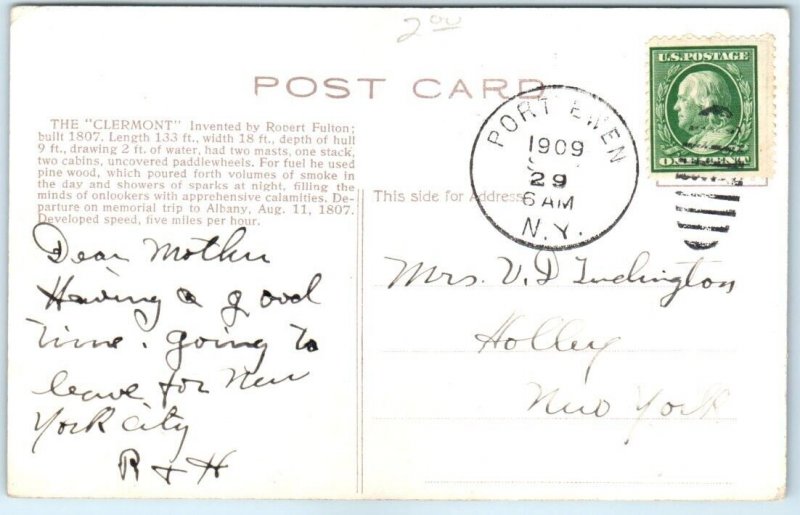 2.00
POST CARD
THE "CLERMONT" Invented by Robert Fulton;
built 1807. Length 133 ft., width 18 ft., depth of hull
9 ft., drawing 2 ft. of water, had two masts, one stack,
two cabins, uncovered paddlewheels. For fuel he used
pine wood, which poured forth volumes of smoke in
the day and showers of sparks at night, filling the
minds of onlookers with apprehensive calamities. De-
parture on memorial trip to Albany, Aug. 11, 1807.
Developed speed, five miles per hour.
Dear Mother
Having a good
time. going to
leave for New
York City
R & H
This side for Address
PORT EWEN
1909
29
6 AM
N.Y.
U.S. POSTAGE
ONE CENT
Mrs. V. D Ludington
Holley
New York